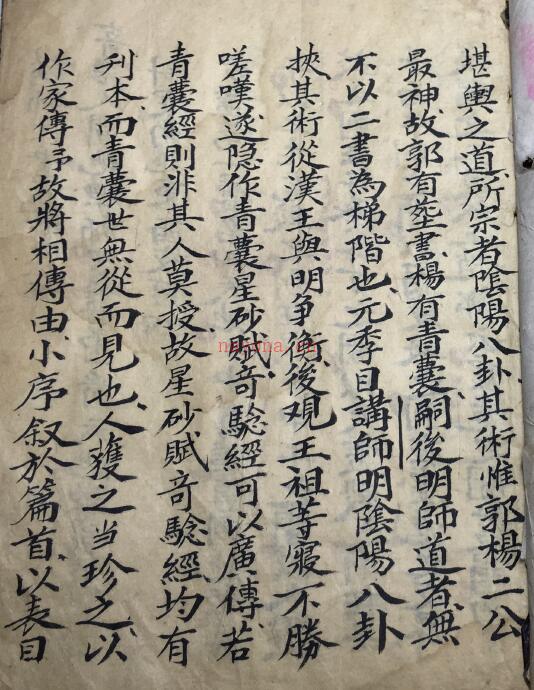 堪輿之道所宗者陰陽八卦其術惟郭楊二公
最神故郭有塟書楊有青囊嗣後明師道者無
不以二書為梯階也元季目講師明陰陽八卦
挾其術從漢王與明爭衡後观王祖等寢不勝
嗟嘆遂隐作青囊星砂賦奇騐經可以廣傳若
青囊經則非其人莫授故星砂賦奇騐經均有
刋本而青囊世無從而見也人獲之当珍之以
作家傳予故將相傳由小序叙於篇首以表目